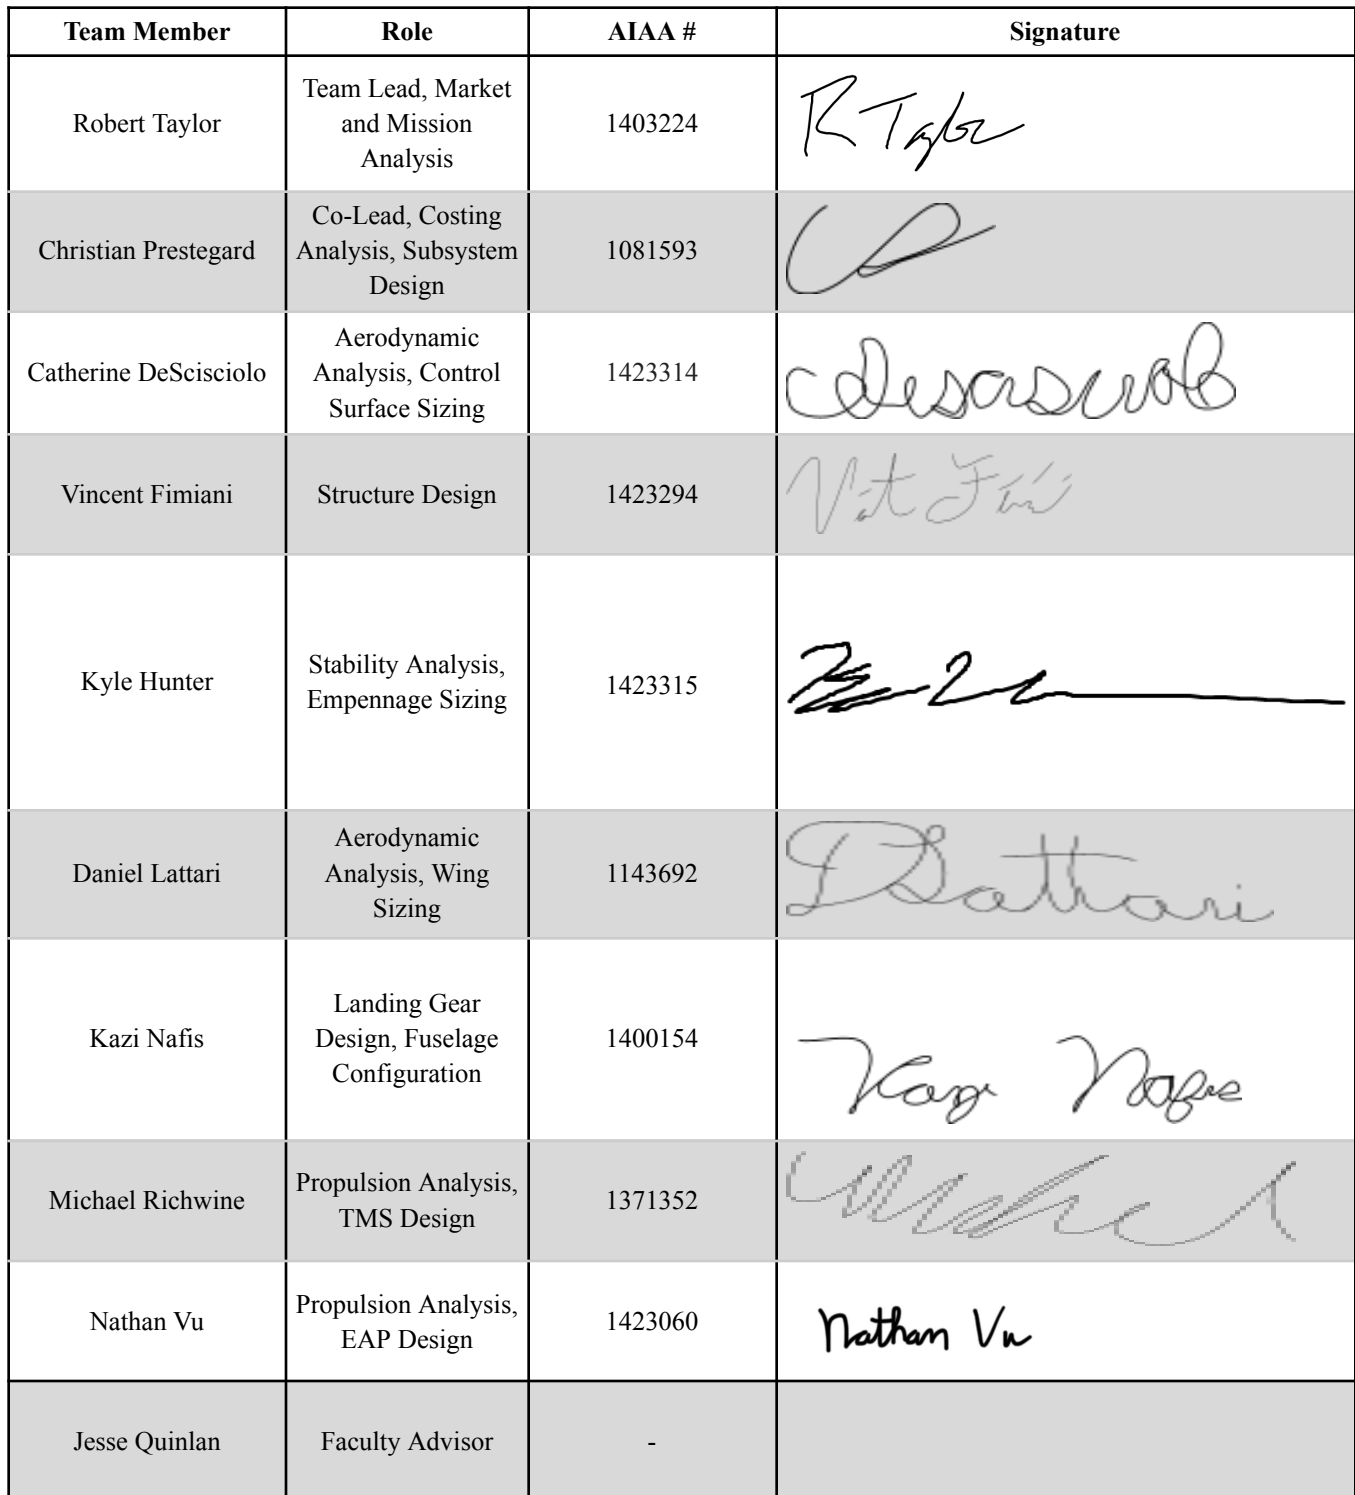 Team Member Role AIAA # Signature
Robert Taylor
Team Lead, Market
and Mission
Analysis
1403224
R Taylor
Christian Prestegard
Co-Lead, Costing
Analysis, Subsystem
Design
1081593
Catherine DeScisciolo
Aerodynamic
Analysis, Control
Surface Sizing
1423314
CDeScisciolo
Vincent Fimiani
Structure Design
1423294
Kyle Hunter
Stability Analysis,
Empennage Sizing
1423315
Daniel Lattari
Aerodynamic
Analysis, Wing
Sizing
1143692
DLattari
Kazi Nafis
Landing Gear
Design, Fuselage
Configuration
1400154
Kazi Nafis
Michael Richwine
Propulsion Analysis,
TMS Design
1371352
Nathan Vu
Propulsion Analysis,
EAP Design
1423060
Nathan Vu
Jesse Quinlan
Faculty Advisor
-